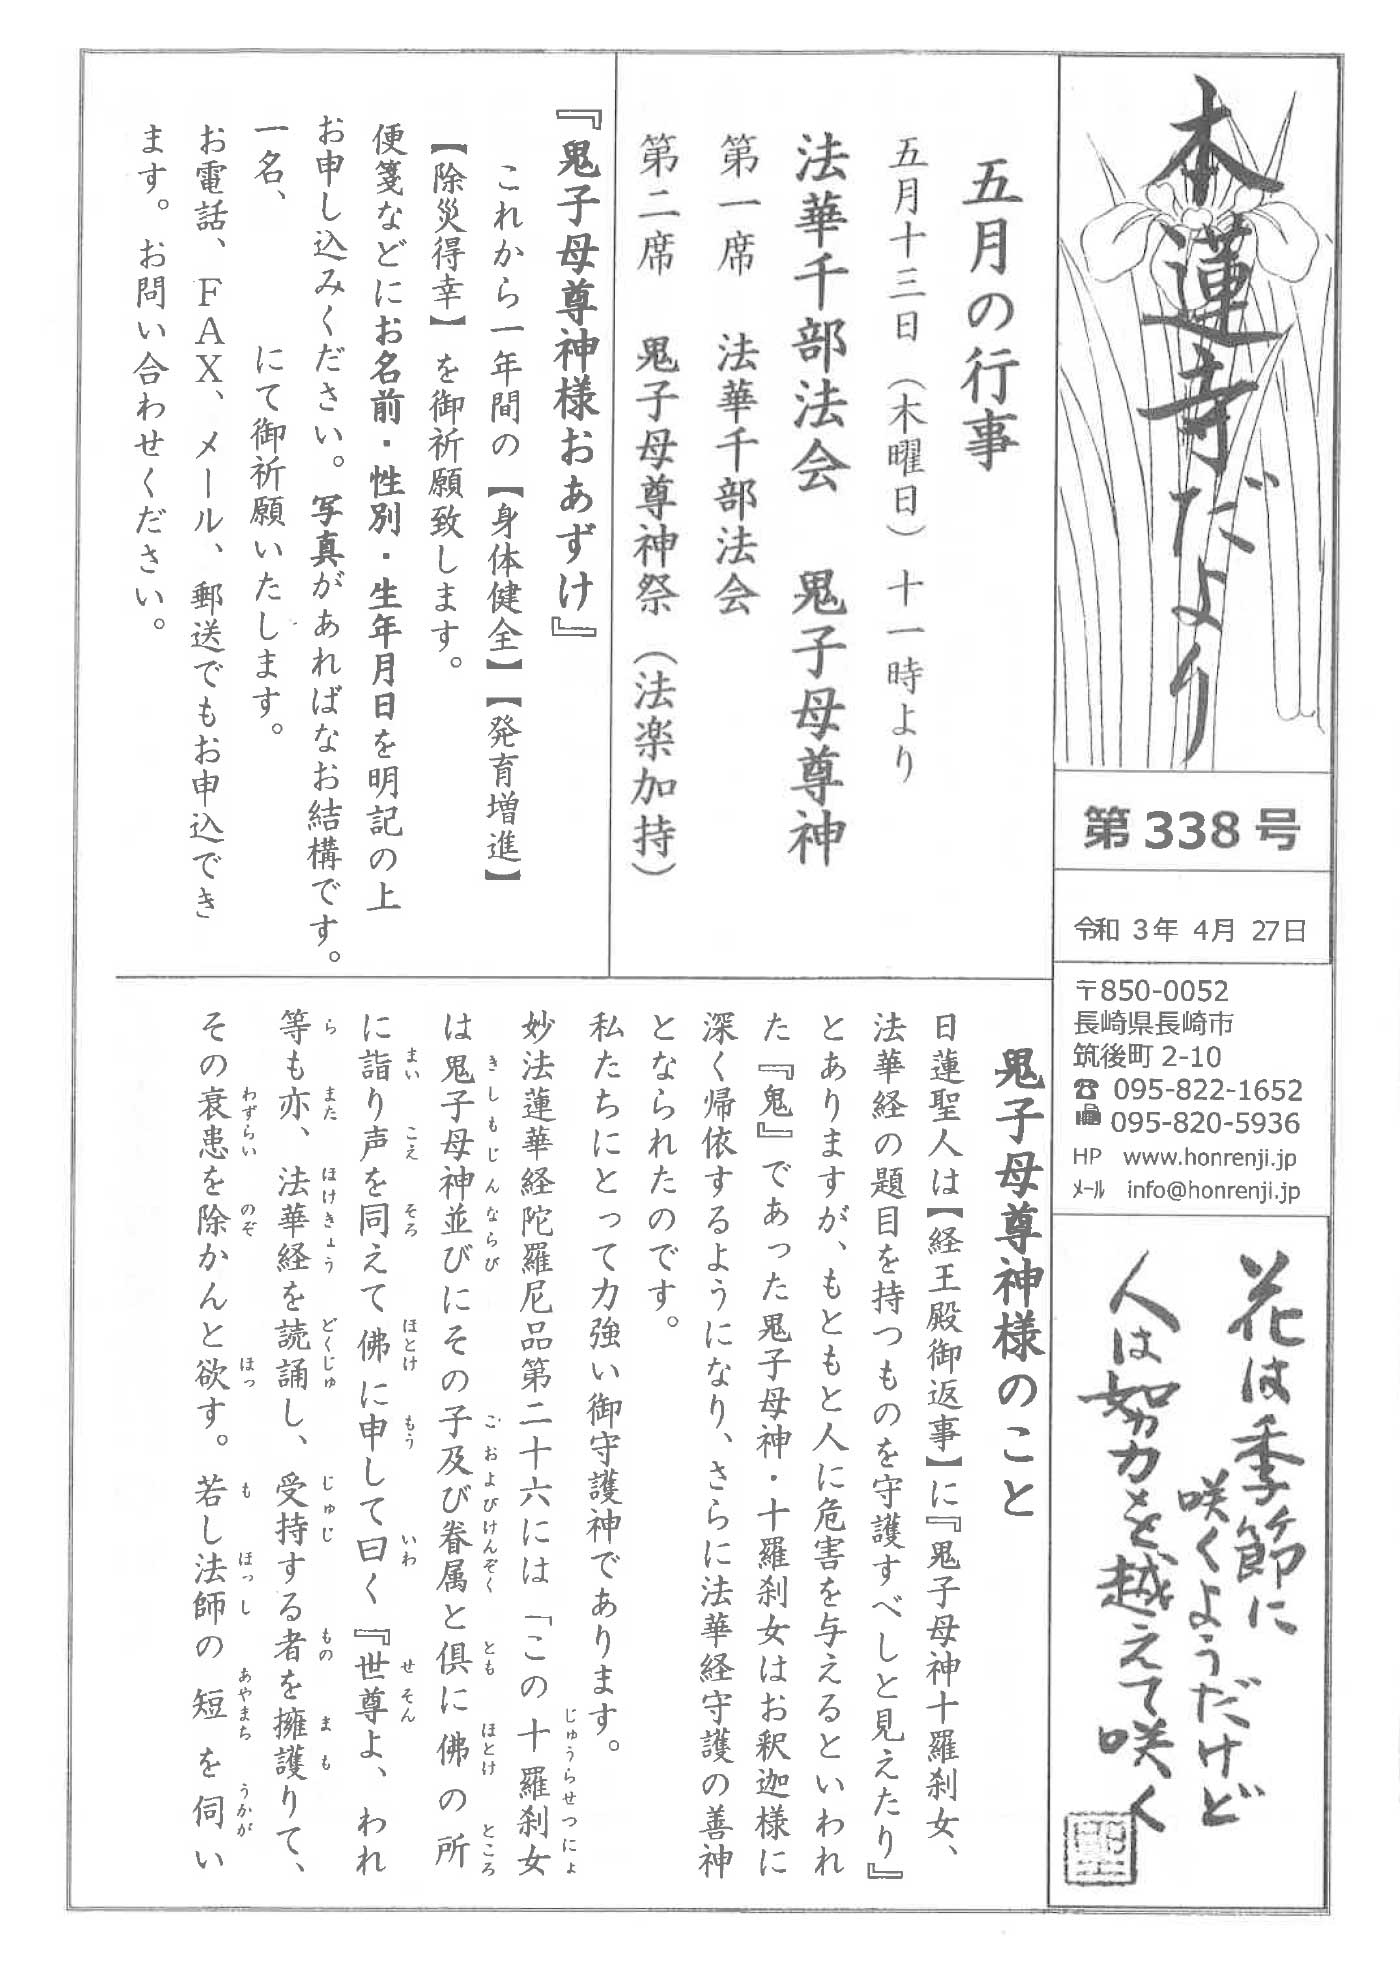 本蓮寺だより
第338号
令和 3年 4月 27日
〒850-0052
長崎県長崎市
筑後町 2-10
☎ 095-822-1652
095-820-5936
HP www.honrenji.jp
ﾒｰﾙ info@honrenji.jp
花は季節に
咲くようだけど
人は努力を越えて咲く
五月の行事
五月十三日（木曜日）十一時より
法華千部法会 鬼子母尊神
第一席 法華千部法会
第二席 鬼子母尊神祭（法楽加持）
『鬼子母尊神様おあずけ』
これから一年間の【身体健全】【発育増進】
【除災得幸】を御祈願致します。
便箋などにお名前・性別・生年月日を明記の上
お申し込みください。写真があればなお結構です。
一名、 にて御祈願いたします。
お電話、ＦＡＸ、メール、郵送でもお申込でき
ます。お問い合わせください。
鬼子母尊神様のこと
日蓮聖人は【経王殿御返事】に『鬼子母神十羅刹女、
法華経の題目を持つものを守護すべしと見えたり』
とありますが、もともと人に危害を与えるといわれ
た『鬼』であった鬼子母神・十羅刹女はお釈迦様に
深く帰依するようになり、さらに法華経守護の善神
となられたのです。
私たちにとって力強い御守護神であります。
妙法蓮華経陀羅尼品第二十六には「この十羅刹女
じゅうらせつにょ
は鬼子母神並びにその子及び眷属と倶に佛の所
きしもじんならび ご およびけんぞく とも ほとけ ところ
に詣り声を同えて佛に申して曰く『世尊よ、われ
まい こえ そろ ほとけ もう いわ せそん
等も亦、法華経を読誦し、受持する者を擁護りて、
ら また ほけきょう どくじゅ じゅじ もの まも
その衰患を除かんと欲す。若し法師の短を伺い
わずらい のぞ ほっ も ほっし あやまち うかが